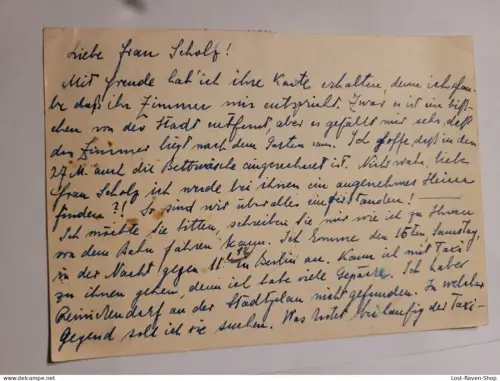 Liebe Frau Scholz!
Mit Freude hab' ich ihre Karte erhalten, denn ich glau-
be daß ihr Zimmer mir entspricht. Zwar es ist ein biß-
chen von der Stadt entfernt aber es gefällt mir sehr, daß
das Zimmer liegt nach dem Garten raus. Ich hoffe, daß in dem
27 M. auch die Bettwäsche eingerechnet ist. Nicht wahr, liebe
Frau Scholz ich werde bei ihnen ein angenehmes Heim
finden?! So sind wir über alles einverstanden!
Ich möchte Sie bitten, schreiben Sie mir wie ich zu Ihnen
von dem Bahn fahren kann. Ich komme den 15ten Samstag,
in der Nacht gegen 11 in Berlin an. Kann ich mit Taxi
zu ihnen gehen, denn ich habe viele Gepäcke. Ich habe
Reinickendorf an der Stadtplan nicht gefunden. In welcher
Gegend soll ich sie suchen. Was kostet beiläufig der Taxi-
Lost-Raven-Shop